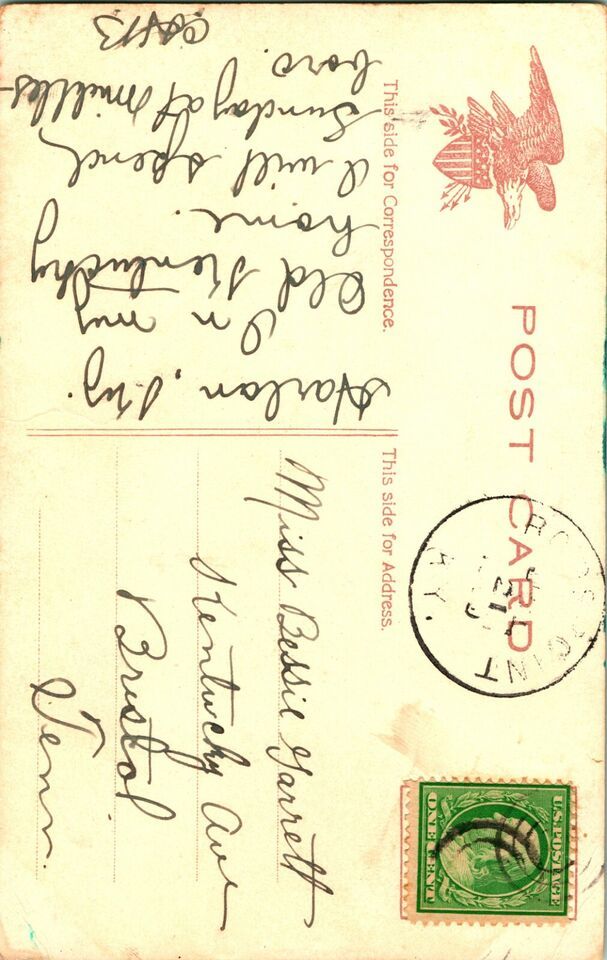 POST CARD
This side for Correspondence.
This side for Address.
Harlan, Ky.
In my
Old Kentucky
home.
I will spend
Sunday at Milles-
boro.
Miss Bessie Garrett
Kentucky Ave
Bristol
Tenn.
ROSSPOINT
KY.
U.S. POSTAGE
ONE CENT